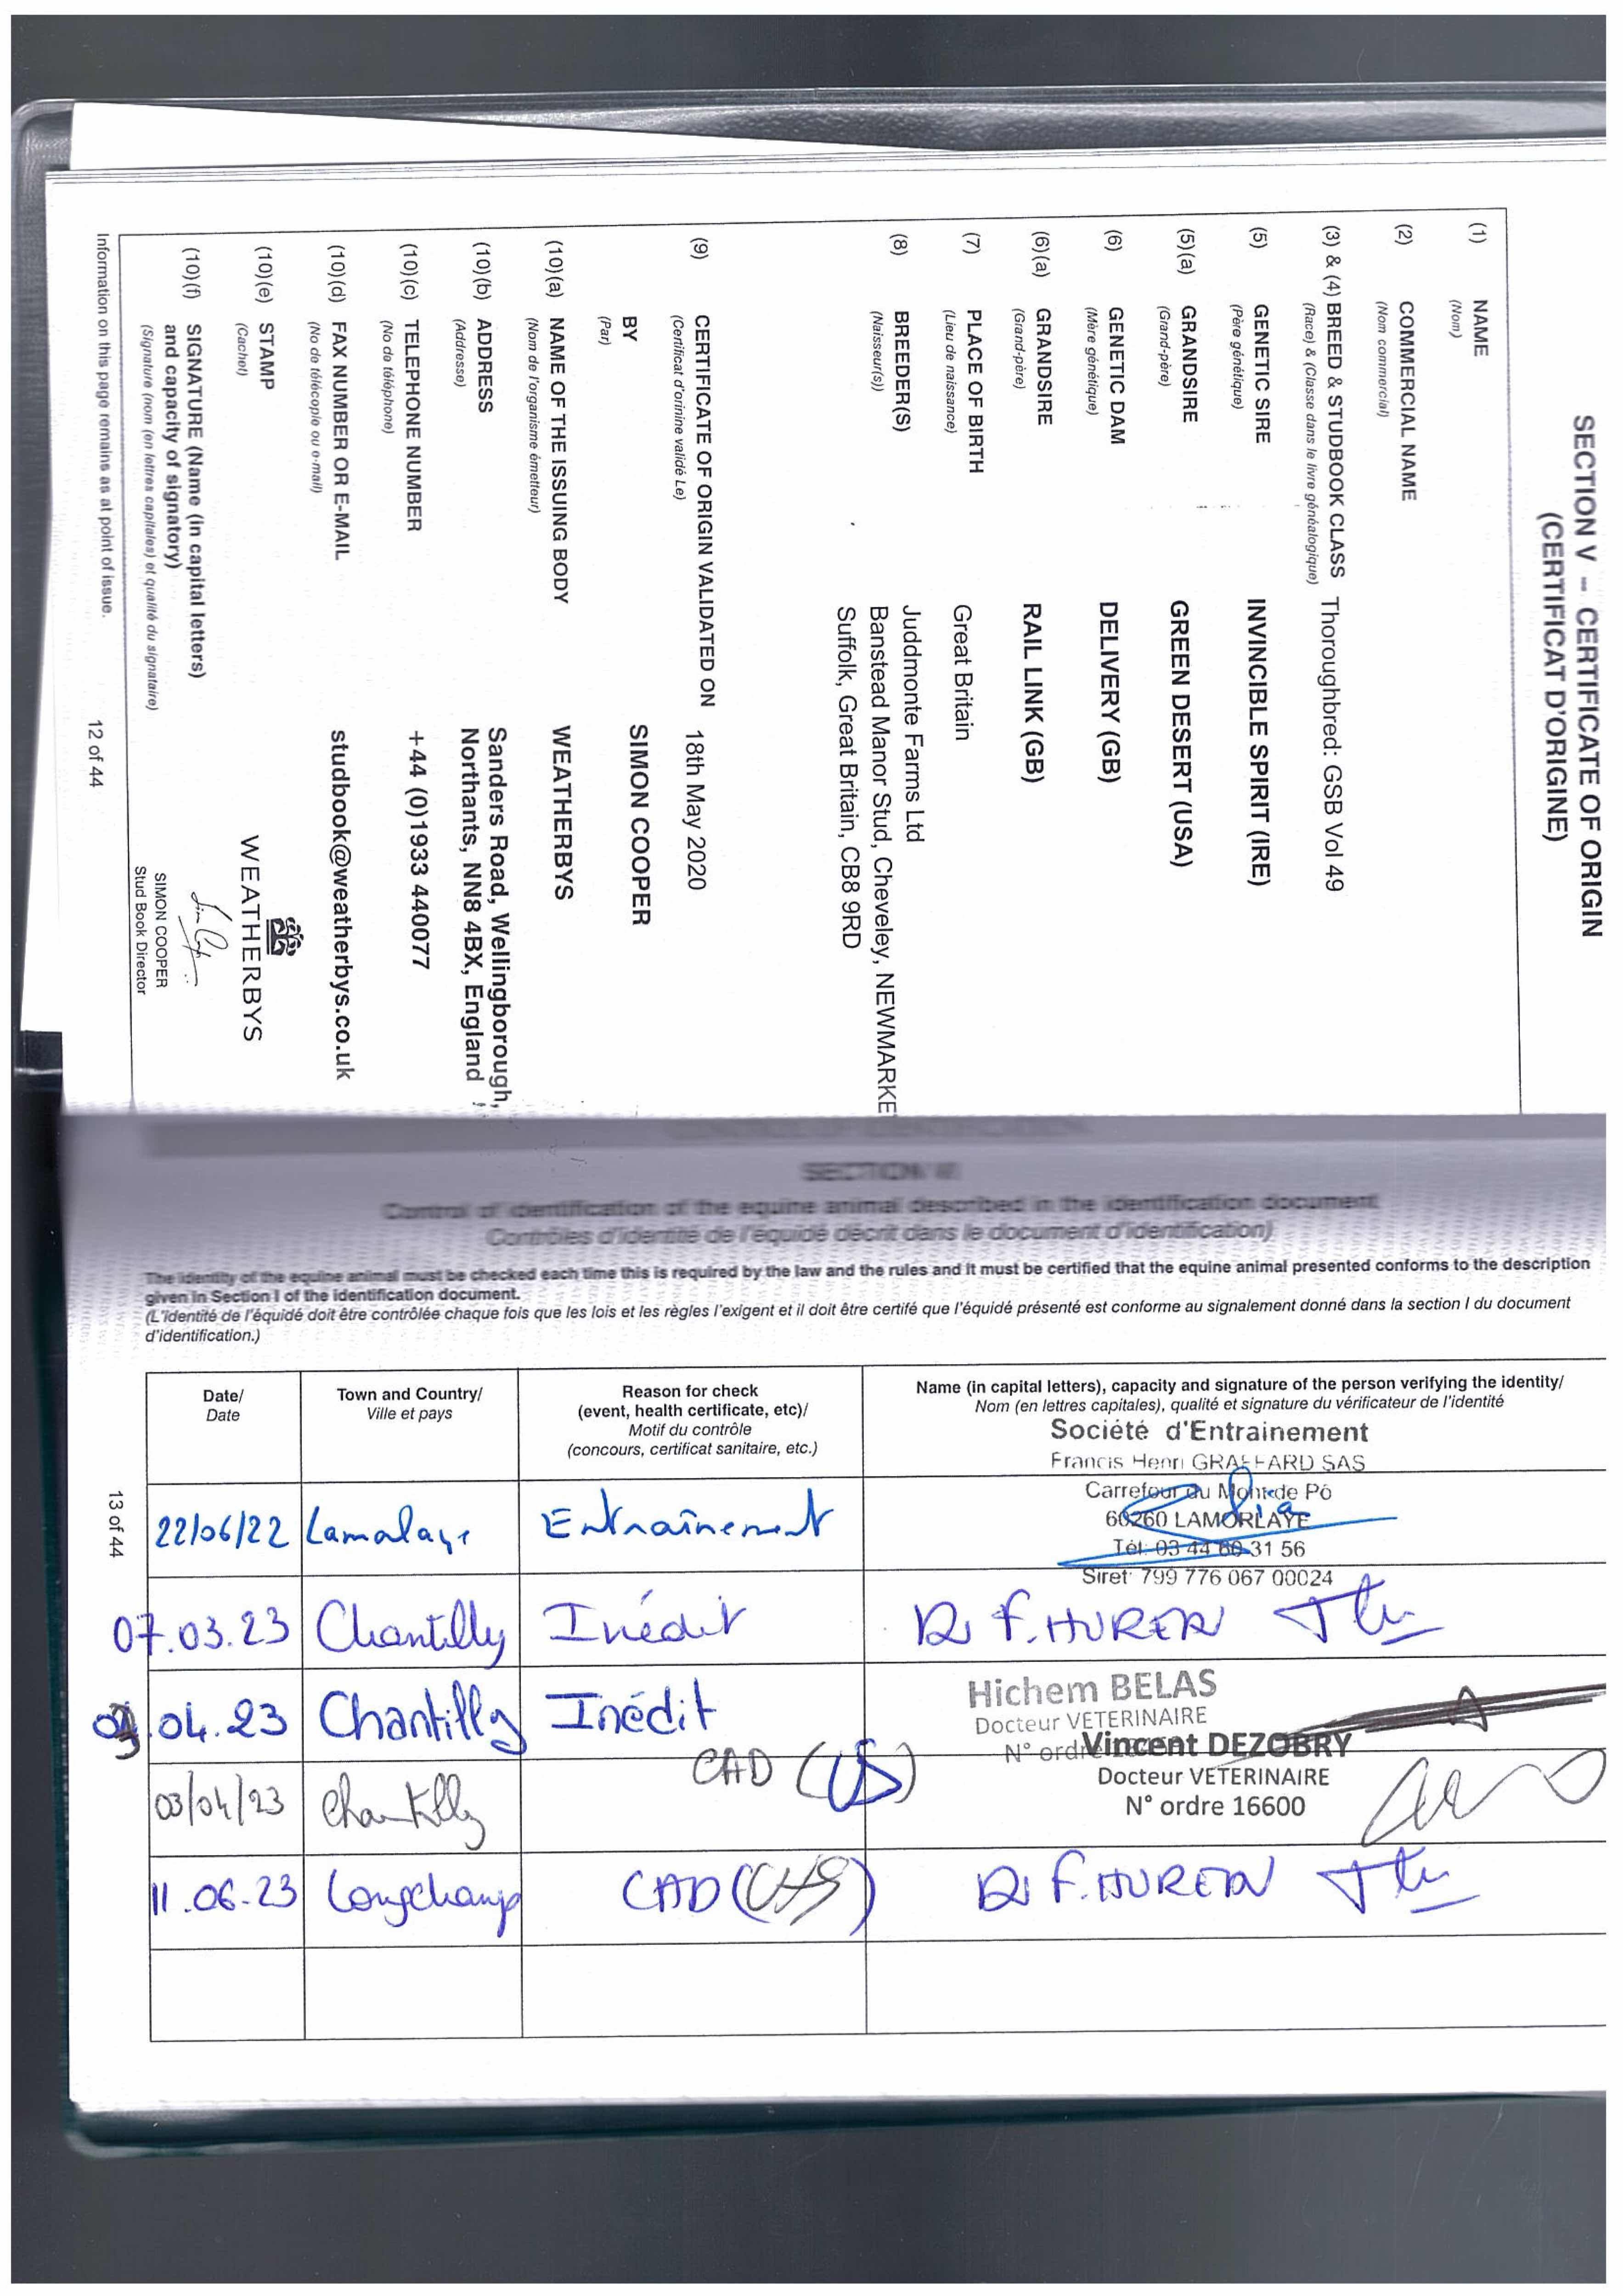 SECTION V – CERTIFICATE OF ORIGIN
(CERTIFICAT D'ORIGINE)
(1) NAME
(Nom)
(2) COMMERCIAL NAME
(Nom commercial)
(3) & (4) BREED & STUDBOOK CLASS Thoroughbred: GSB Vol 49
(Race) & (Classe dans le livre généalogique)
(5) GENETIC SIRE INVINCIBLE SPIRIT (IRE)
(Père génétique)
(5)(a) GRANDSIRE GREEN DESERT (USA)
(Grand-père)
(6) GENETIC DAM DELIVERY (GB)
(Mère génétique)
(6)(a) GRANDSIRE RAIL LINK (GB)
(Grand-père)
(7) PLACE OF BIRTH Great Britain
(Lieu de naissance)
(8) BREEDER(S) Juddmonte Farms Ltd
(Naisseur(s)) Banstead Manor Stud, Cheveley, NEWMARKE
Suffolk, Great Britain, CB8 9RD
(9) CERTIFICATE OF ORIGIN VALIDATED ON 18th May 2020
(Certificat d'orinine validé Le)
BY SIMON COOPER
(Par)
(10)(a) NAME OF THE ISSUING BODY WEATHERBYS
(Nom de l'organisme émetteur)
(10)(b) ADDRESS Sanders Road, Wellingborough,
(Addresse) Northants, NN8 4BX, England
(10)(c) TELEPHONE NUMBER +44 (0)1933 440077
(No de téléphone)
(10)(d) FAX NUMBER OR E-MAIL studbook@weatherbys.co.uk
(No de télécopie ou e-mail)
(10)(e) STAMP WEATHERBYS
(Cachet)
(10)(f) SIGNATURE (Name (in capital letters)
and capacity of signatory)
(Signature (nom (en lettres capitales) et qualité du signataire)
SIMON COOPER
Stud Book Director
Information on this page remains as at point of issue.
12 of 44
Control of identification of the equine animal described in the identification document
Contrôles d'identité de l'équidé décrit dans le document d'identification)
The identity of the equine animal must be checked each time this is required by the law and the rules and it must be certified that the equine animal presented conforms to the description
given in Section I of the identification document.
(L'identité de l'équidé doit être contrôlée chaque fois que les lois et les règles l'exigent et il doit être certifé que l'équidé présenté est conforme au signalement donné dans la section I du document
d'identification.)
Date/ Town and Country/ Reason for check Name (in capital letters), capacity and signature of the person verifying the identity/
Date Ville et pays (event, health certificate, etc)/ Nom (en lettres capitales), qualité et signature du vérificateur de l'identité
Motif du contrôle
(concours, certificat sanitaire, etc.)
Société d'Entrainement
Francis Henri GRAFFARD SAS
Carrefour du Mont de Pô
60260 LAMORLAYE
Tél: 03 44 60 31 56
Siret: 799 776 067 00024
22/06/22 Lamalaye Entraînement
07.03.23 Chantilly Inédit F. HUREN
04.23 Chantilly Inédit
Hichem BELAS
Docteur VETERINAIRE
N° ord
03/04/23 Chantilly CAD (US)
Vincent DEZOBRY
Docteur VETERINAIRE
N° ordre 16600
11.06.23 Longchamp CAD (CHS) F. HUREN
13 of 44